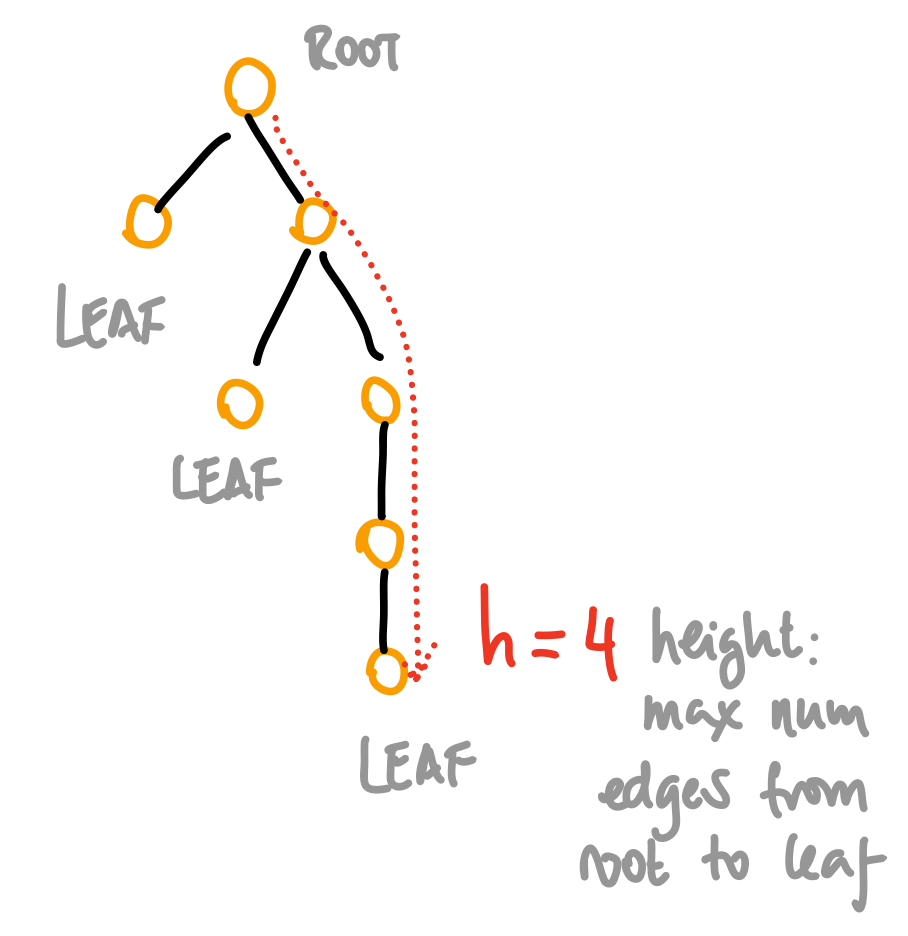 ROOT
LEAF
LEAF
h=4 height:
max num
edges from
root to leaf
LEAF